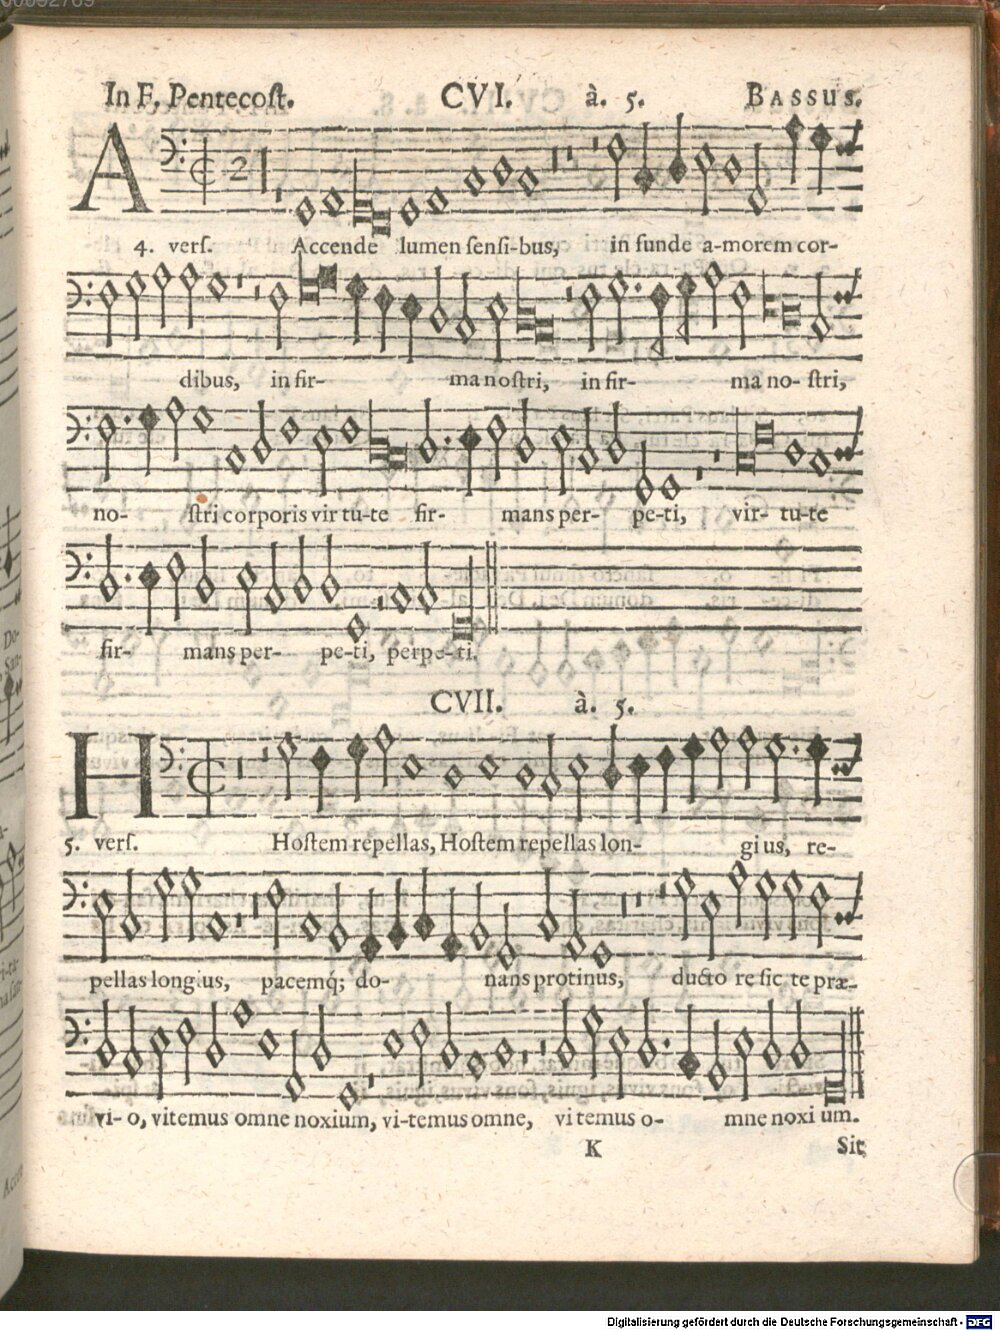 00092769
In F. Pentecoſt. CVI. à. 5. BASSUS.
A
2
4. verſ. Accende lumen ſenſi-bus, in funde a-morem cor-
dibus, in fir- ma noſtri, in fir- ma no- ſtri,
no- ſtri corporis vir tu-te fir- mans per- pe-ti, vir- tu-te
fir- mans per- pe-ti, perpe-ti.
CVII. à. 5.
H
5. verſ. Hoſtem repellas, Hoſtem repellas lon- gi us, re-
pellas longius, pacemq; do- nans protinus, ducto re ſic te præ-
vi- o, vitemus omne noxium, vi-temus omne, vi temus o- mne noxi um.
K Sit
Digitalisierung gefördert durch die Deutsche Forschungsgemeinschaft - DFG